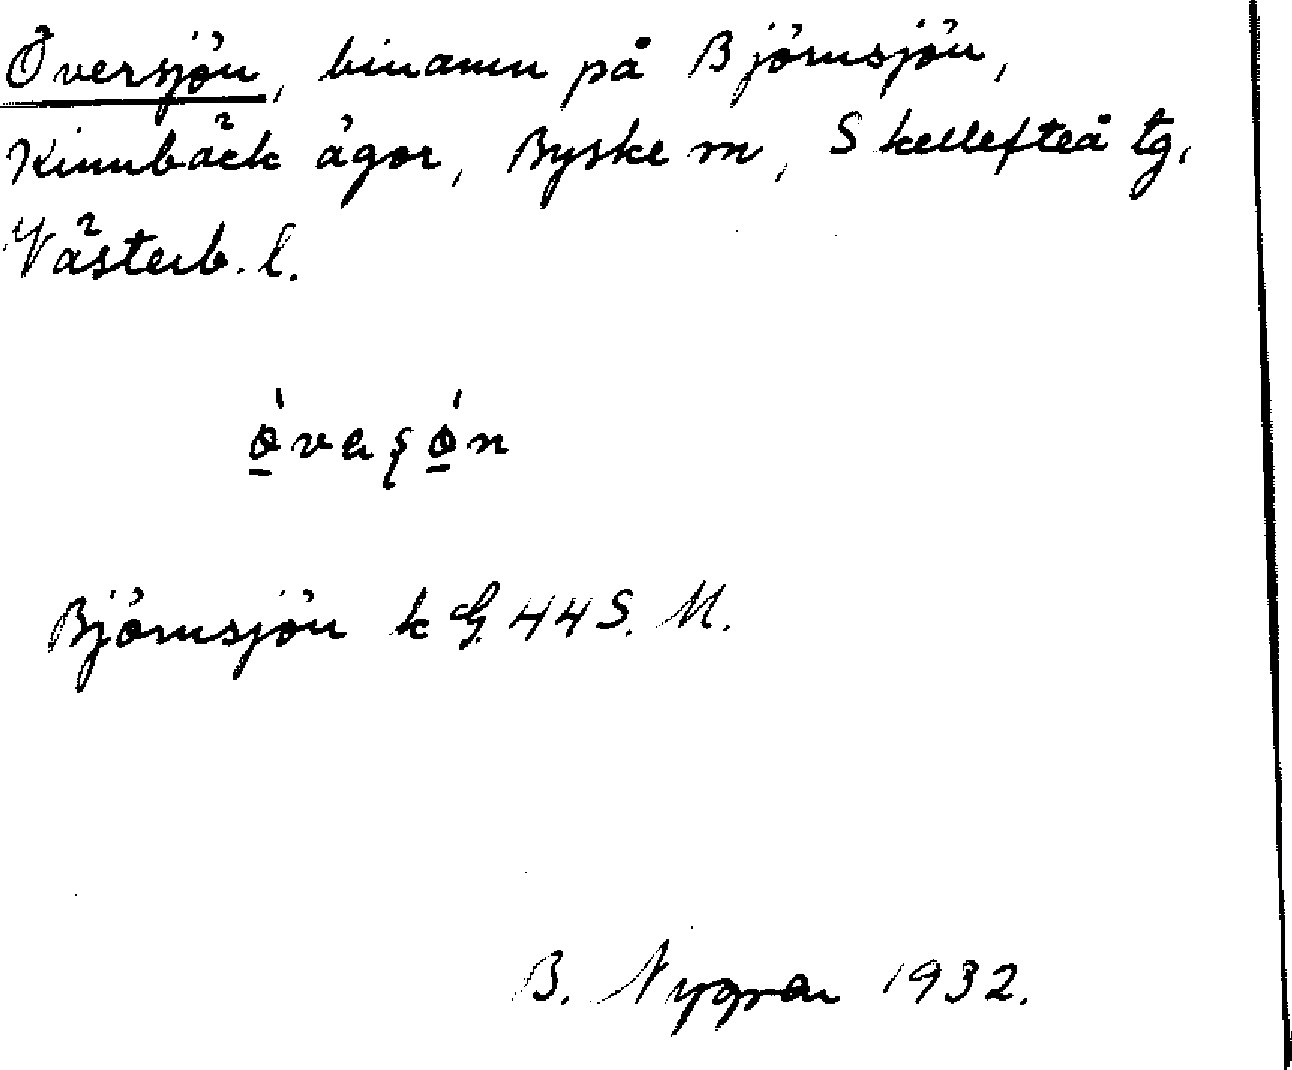 Översjön, binamn på Björnsjön,
Kinnbäck ägor, Byske sn, Skellefteå tg,
Västerb. l.
Björnsjön k G. 44 S. M.
B. Nygren 1932.